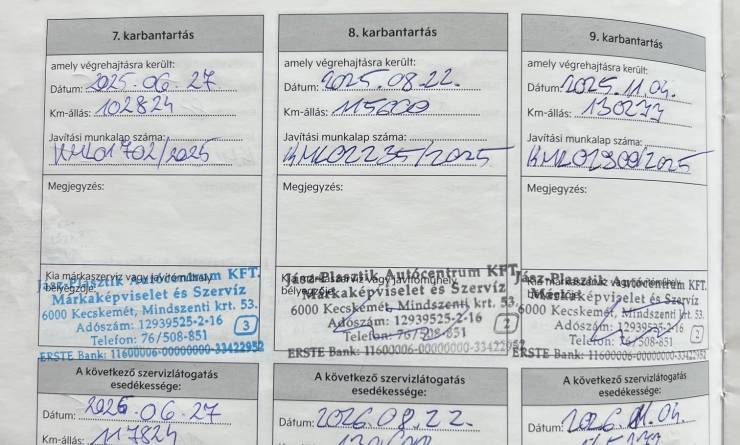 7. karbantartás
amely végrehajtásra került:
Dátum: 2025.06.27
Km-állás: 102824
Javítási munkalap száma:
KML01702/2025
Megjegyzés:
Kia márkaszerviz vagy javítóműhely
bélyegzője:
Jász-Plasztik Autócentrum KFT.
Márkaképviselet és Szervíz
6000 Kecskemét, Mindszenti krt. 53.
Adószám: 12939525-2-16
Telefon: 76/508-851
3
ERSTE Bank: 11600006-00000000-33422952
A következő szervizlátogatás
esedékessége:
Dátum: 2026.06.27
Km-állás: 117824
8. karbantartás
amely végrehajtásra került:
Dátum: 2025.08.22.
Km-állás: 115600
Javítási munkalap száma:
KML02235/2025
Megjegyzés:
Kia márkaszerviz vagy javítóműhely
bélyegzője:
Jász-Plasztik Autócentrum KFT.
Márkaképviselet és Szervíz
6000 Kecskemét, Mindszenti krt. 53.
Adószám: 12939525-2-16
Telefon: 76/508-851
2
ERSTE Bank: 11600006-00000000-33422952
A következő szervizlátogatás
esedékessége:
Dátum: 2026.08.22.
9. karbantartás
amely végrehajtásra került:
Dátum: 2025.11.04.
Km-állás: 130277
Javítási munkalap száma:
KML02800/2025
Megjegyzés:
Kia márkaszerviz vagy javítóműhely
Jász-Plasztik Autócentrum KFT.
Márkaképviselet és Szervíz
6000 Kecskemét, Mindszenti krt. 53.
Adószám: 12939525-2-16
Telefon: 76/508-851
2
ERSTE Bank: 11600006-00000000-33422952
A következő szervizlátogatás
esedékessége:
Dátum: 2026.11.04.